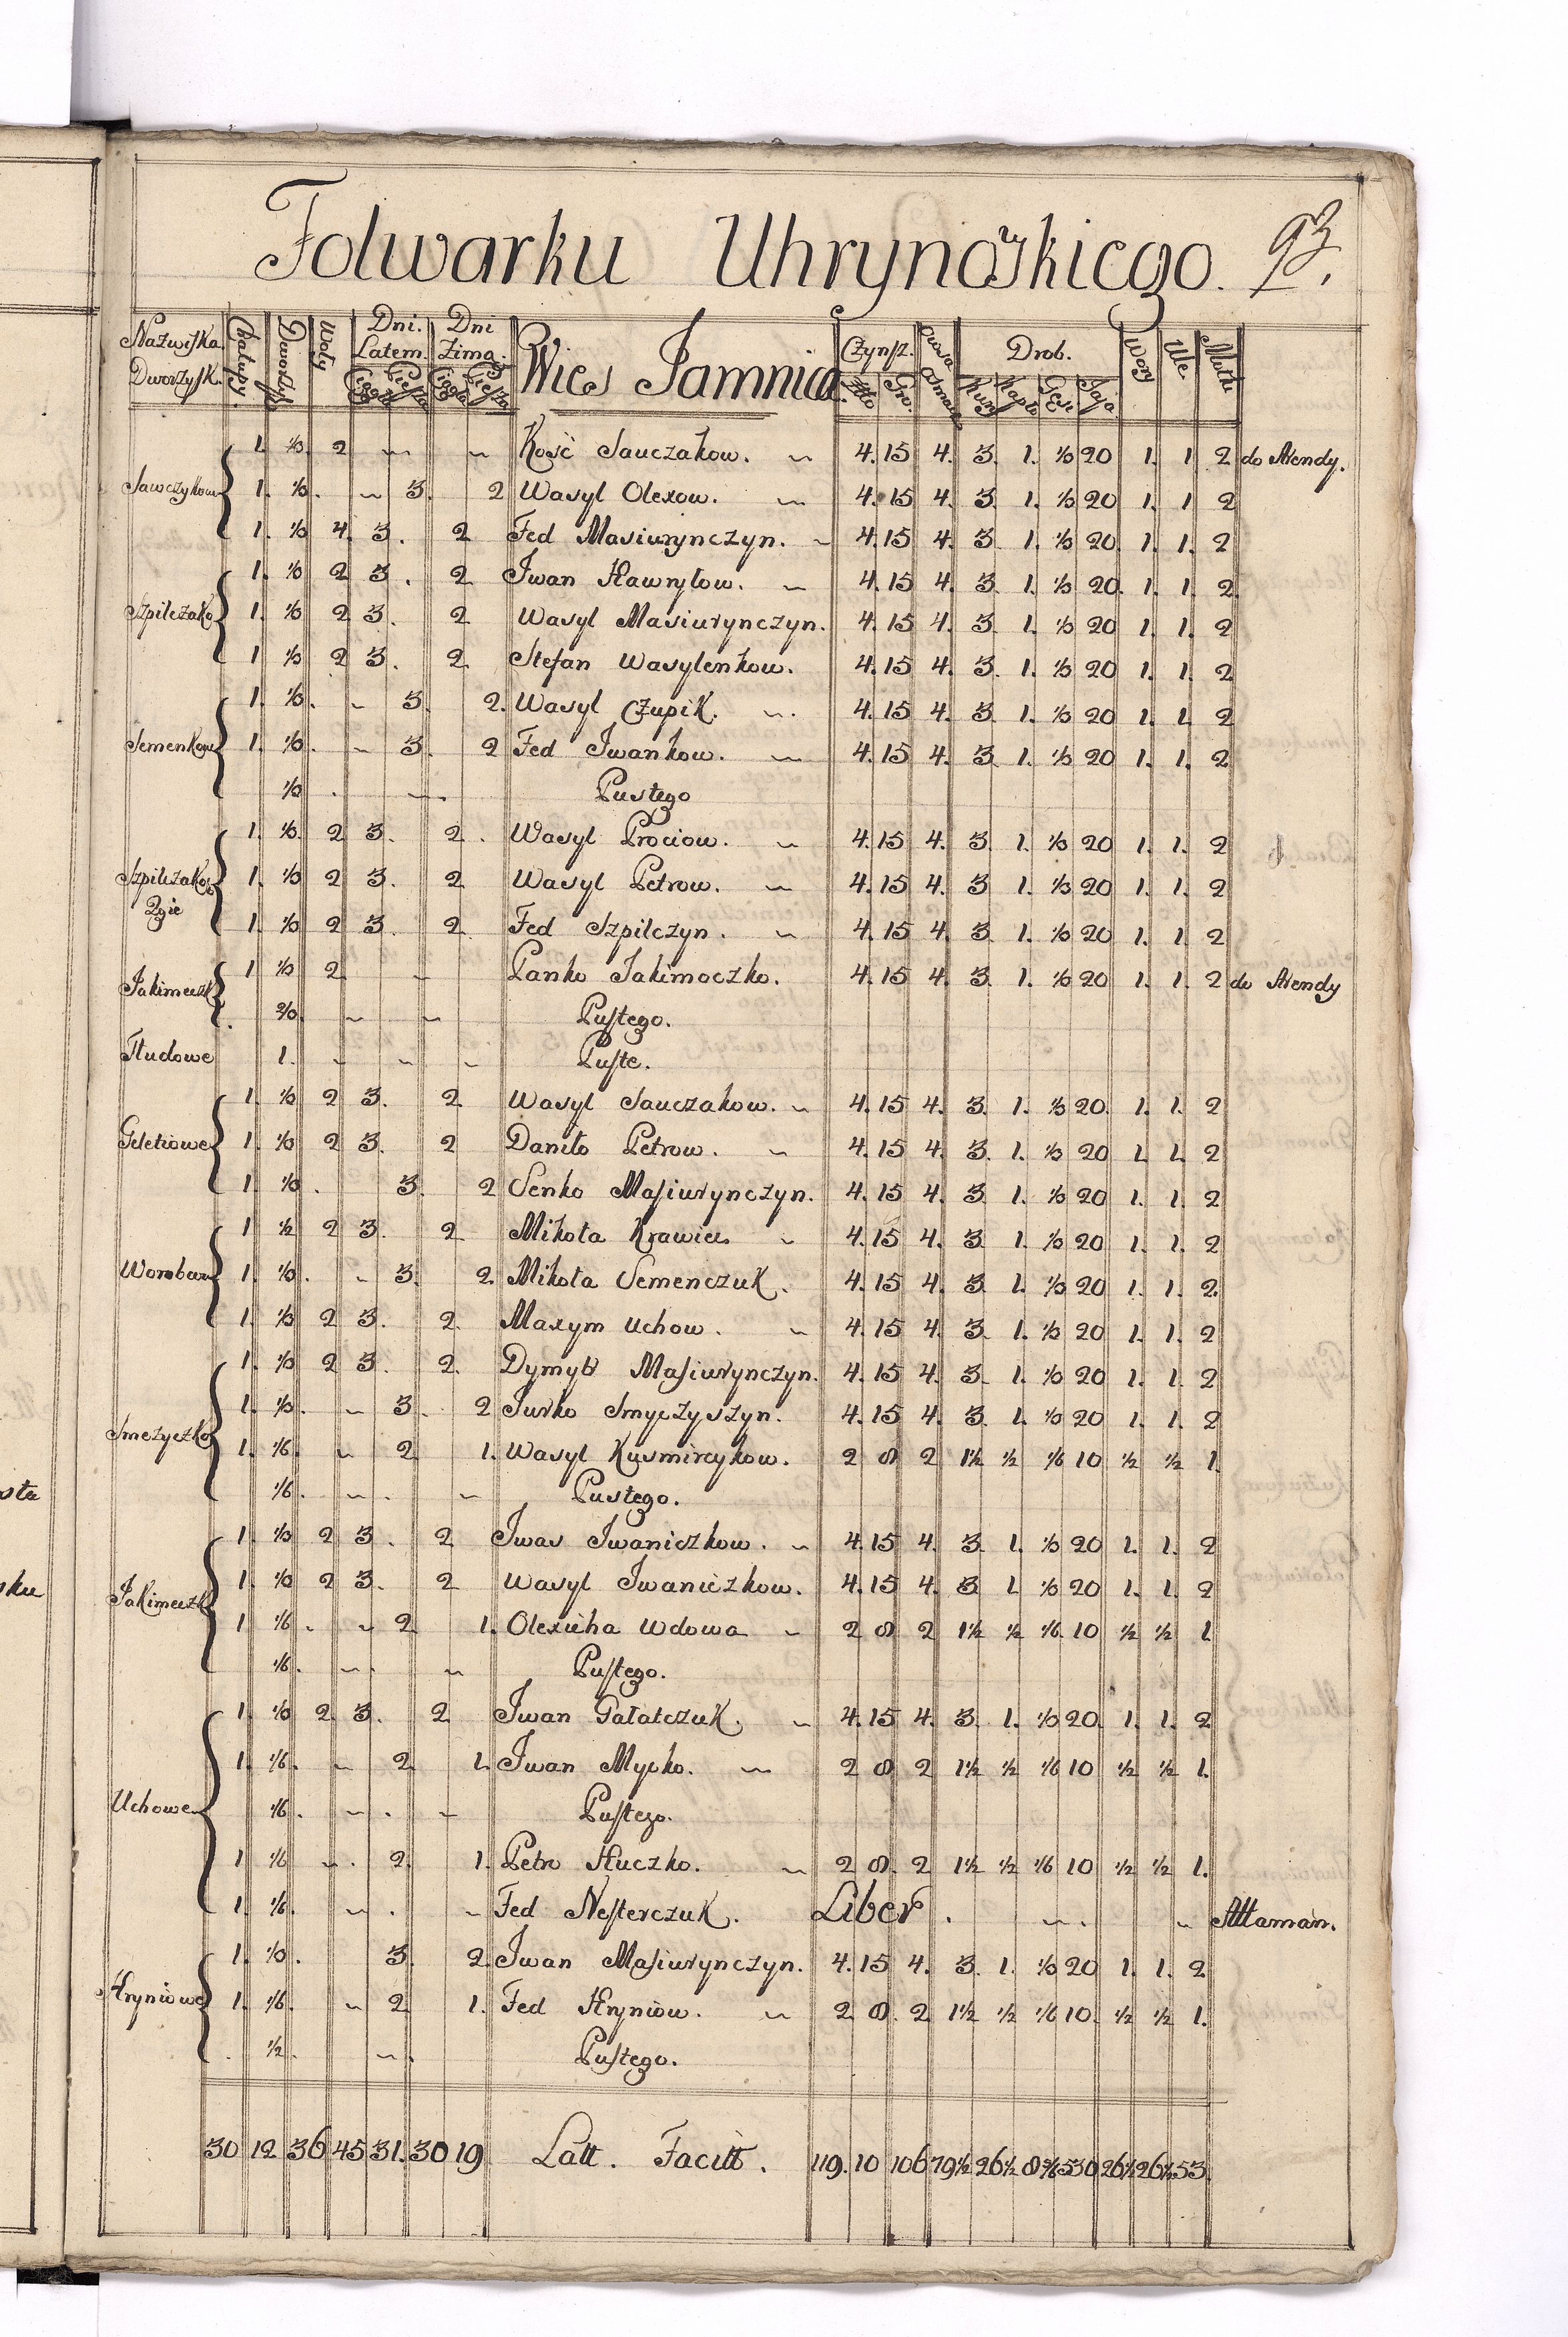 Folwarku Uhrynowskiego. 93.
Nazwiska Dworzysk. Chałupy. Dworzysk Woły Dni Latem. Ciągłe Piesze Dni Zimą Ciągłe Piesze Wieś Jamnica. Czynsz. Złło Gr. Owsa Drob. Kury Kapło Gęsi Jaja. Wory Ule Motki
Sawczykow 1. 1/3. 2 Kość Sauczakow. 4. 15 4. 3. 1. 1/3 20 1. 1 2 do Arendy.
1. 1/3. 3. 2 Wasyl Olexow. 4. 15 4. 3 1. 1/3 20 1. 1 2
1. 1/3 4. 3. 2 Fed Masiurynczyn. 4. 15 4. 3 1. 1/3 20. 1. 1. 2
Szpilczako 1. 1/3 2 3. 2 Iwan Hawryłow. 4. 15 4. 3 1. 1/3 20. 1. 1. 2.
1. 1/3 2 3. 2 Wasyl Masiurynczyn. 4. 15 4. 3. 1. 1/3 20 1. 1. 2
1 1/3 2 3. 2. Stefan Wasylenkow. 4. 15 4. 3. 1. 1/3 20 1. 1. 2
Semenkow 1. 1/3. 3. 2. Wasyl Czupik. 4. 15 4. 3 1. 1/3 20 1. 1. 2
1. 1/3. 3. 2 Fed Iwankow. 4. 15 4. 3 1. 1/3 20 1. 1. 2
1/3 Pustego
Szpilczakow 2gie 1. 1/3. 2 3. 2. Wasyl Prociow. 4. 15 4. 3 1. 1/3 20 1. 1. 2
1. 1/3 2 3. 2 Wasyl Petrow. 4. 15 4. 3 1. 1/3 20 1. 1. 2
1. 1/3 2 3. 2. Fed Szpilczyn. 4. 15 4. 3 1. 1/3 20 1. 1. 2
Jakimeczk 1 1/3 2 Panko Jakimoczko. 4. 15 4. 3 1. 1/3 20 1. 1. 2 do Arendy
2/3. Pustego.
Hudowe 1. Puste.
Geletiowe 1. 1/3 2 3. 2 Wasyl Sauczakow. 4. 15 4. 3. 1. 1/3 20. 1. 1. 2
1. 1/3 2 3. 2 Daniło Petrow. 4. 15 4. 3. 1. 1/3 20 1. 1. 2
1 1/3. 3. 2 Senko Masiurynczyn. 4. 15 4. 3. 1. 1/3 20 1. 1. 2
Worobcow 1 1/2 2 3. 2 Mikoła Krawiec 4. 15 4. 3 1. 1/3 20 1. 1. 2
1. 1/3. 3. 2 Mikoła Semenczuk. 4. 15 4. 3 1. 1/3 20 1. 1. 2.
1. 1/3 2 3. 2. Maxym Uchow. 4. 15 4. 3 1. 1/3 20 1. 1. 2
Smczyczko 1. 1/3 2 3. 2. Dymytr Masiurynczyn. 4. 15 4. 3. 1. 1/3 20 1. 1. 2
1. 1/3. 3. 2 Jurko Smyczyszyn. 4. 15 4. 3 1. 1/3 20 1. 1. 2
1. 1/6. 2. 1. Wasyl Kusmircykow. 2 8 2 1 1/2 1/2 1/6 10 1/2 1/2 1.
1/6. Pustego.
Jakimeczk 1. 1/3 2 3. 2 Iwas Iwaniczkow. 4. 15 4. 3. 1. 1/3 20 1. 1. 2
1. 1/3 2 3. 2 Wasyl Iwaniczkow. 4. 15 4. 3 1. 1/3 20 1. 1. 2
1 1/6. 2. 1. Olexicha Wdowa 2 8 2 1 1/2 1/2 1/6 10 1/2 1/2 1
1/6. Pustego.
Uchowe 1. 1/3 2. 3. 2. Iwan Gałatczuk. 4. 15 4. 3. 1. 1/3 20. 1. 1. 2
1. 1/6. 2. 1. Iwan Mycko. 2 8 2 1 1/2 1/2 1/6 10 1/2 1/2 1.
1/6. Pustego.
1 1/6 2. 1. Petro Huczko. 2 8. 2 1 1/2 1/2 1/6 10 1/2 1/2 1.
1 1/6. Fed Nesterczuk. Liber. Attaman.
Hryniowe 1. 1/3. 3. 2. Iwan Masiurynczyn. 4. 15 4. 3. 1. 1/3 20 1. 1. 2
1. 1/6. 2. 1. Fed Hryniow. 2. 8. 2 1 1/2 1/2 1/6 10. 1/2 1/2 1.
1/2. Pustego.
30 12 36 45 31. 30 19 Latt. Facitt. 119. 10 106 79 1/2 26 1/2 8 5/6 530 26 1/2 26 1/2 53.